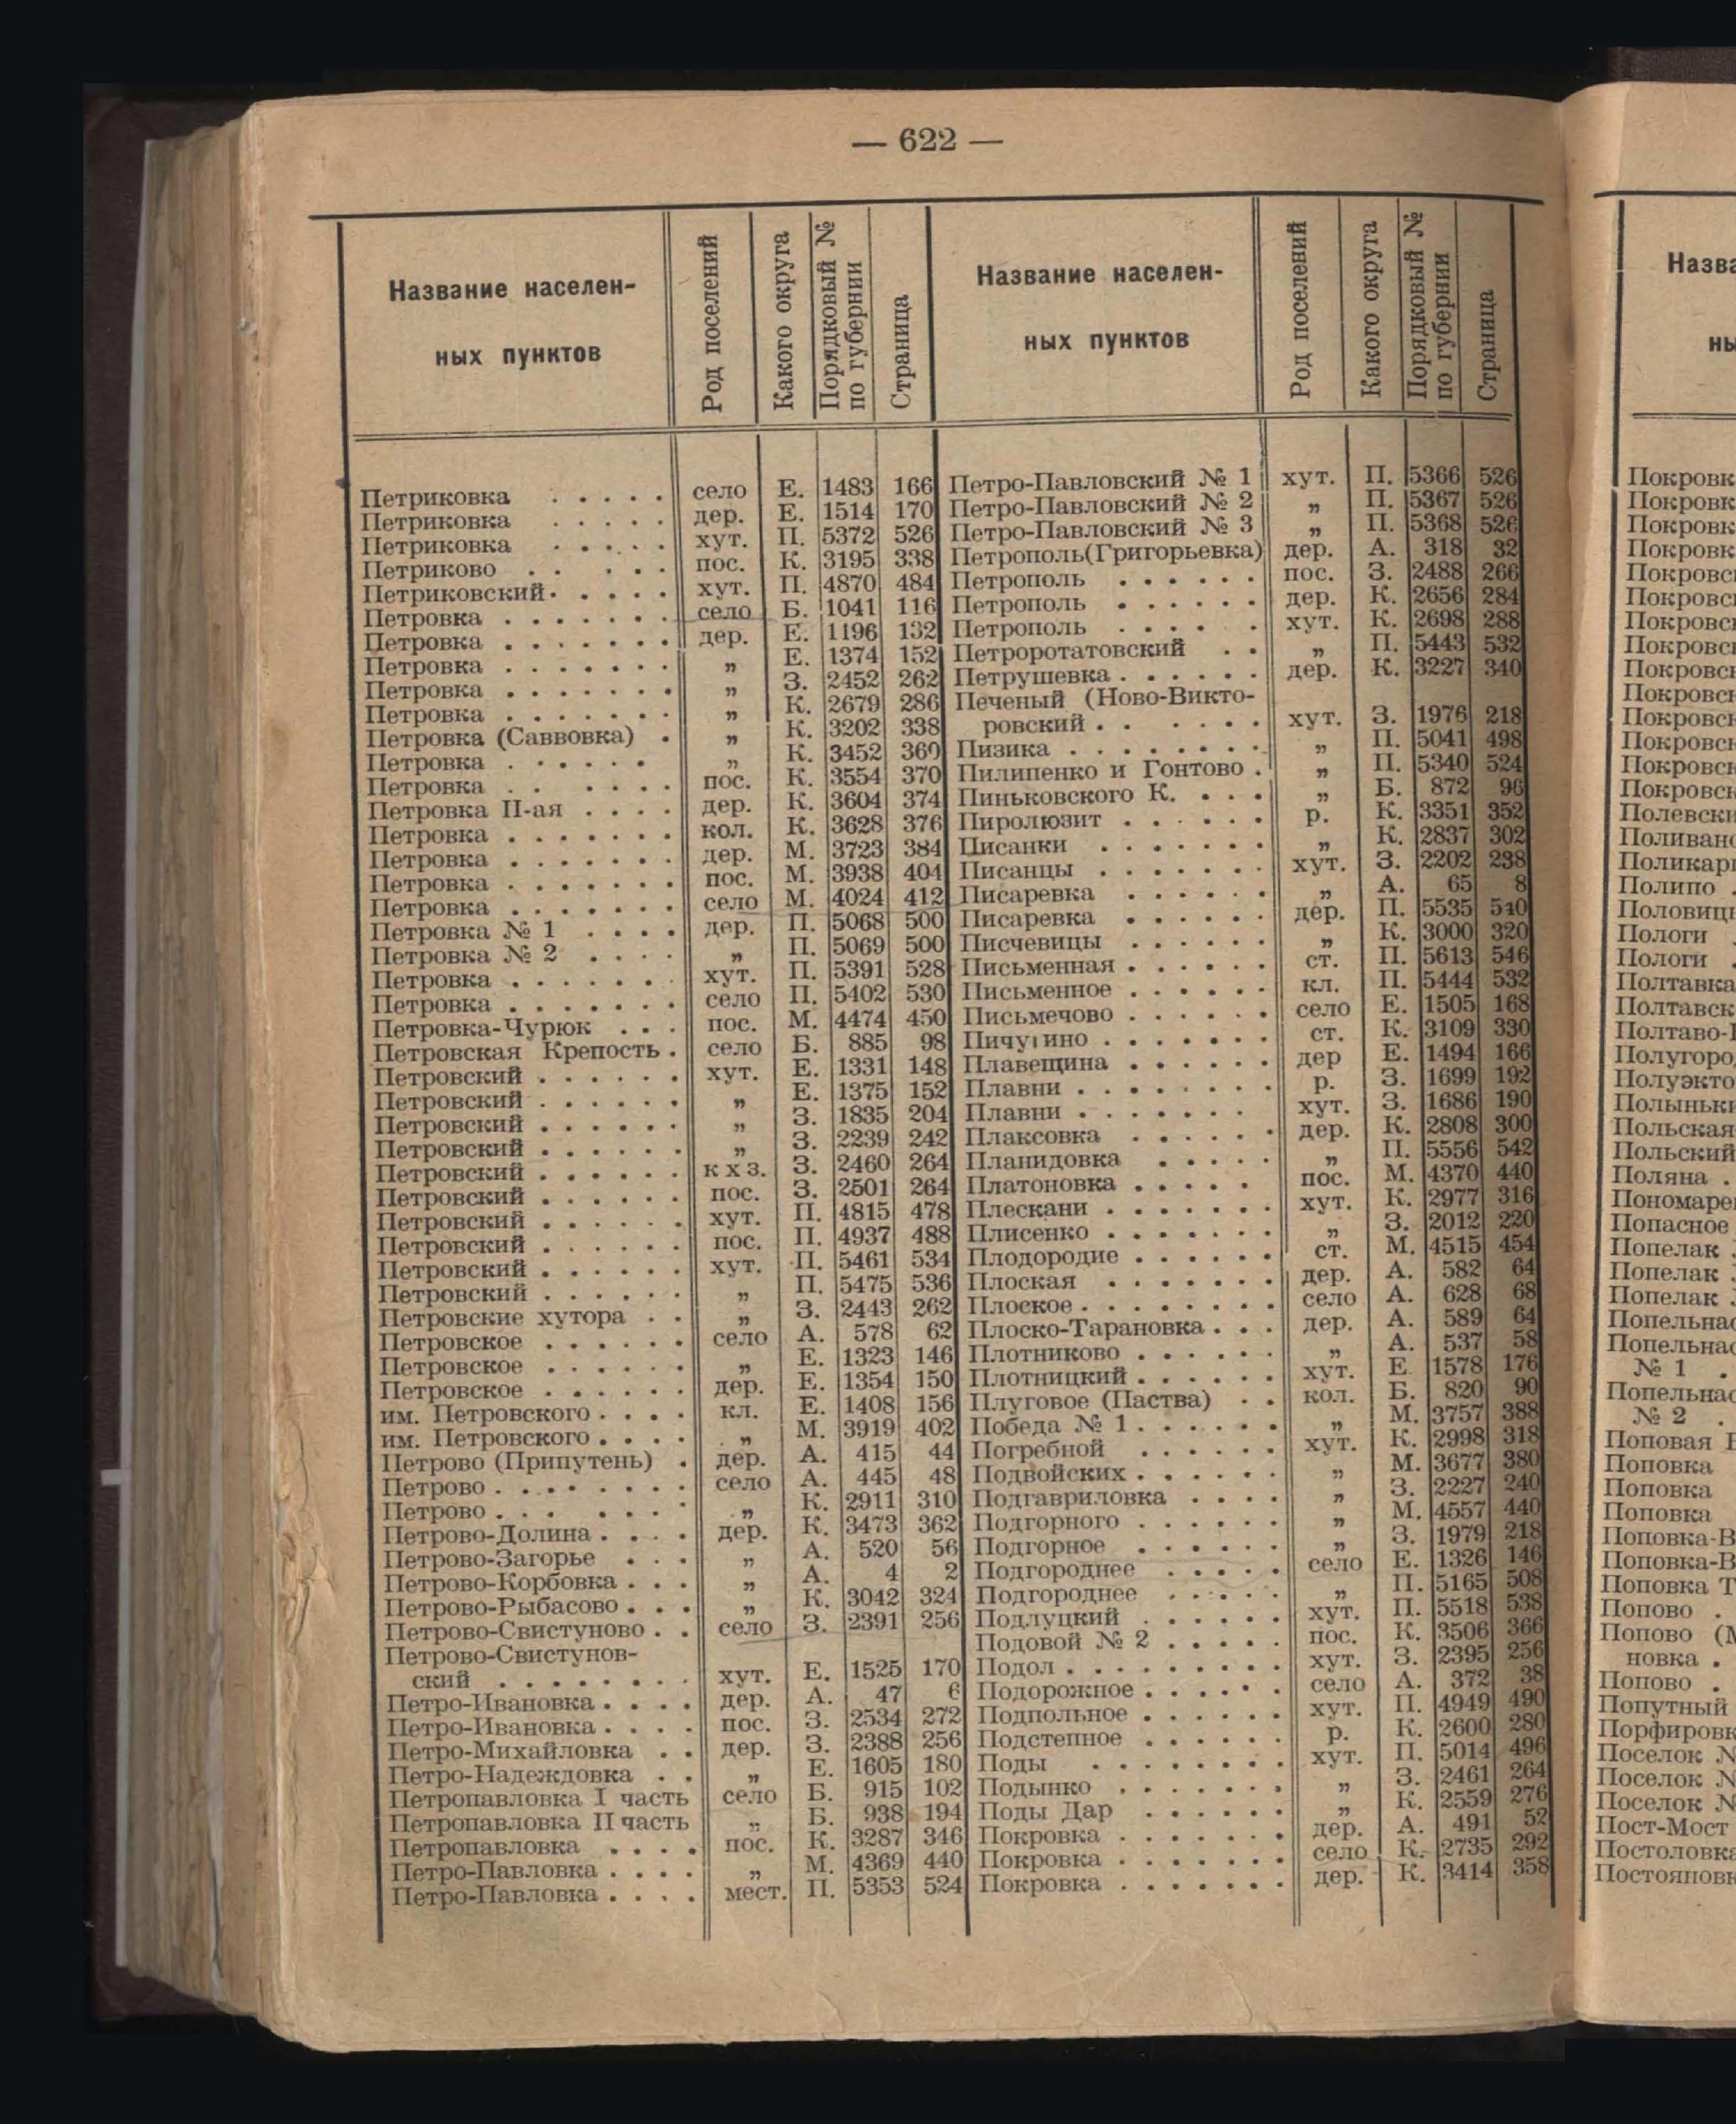 — 622 —
Название населен-
ных пунктов
Род поселений
Какого округа
Порядковый №
по губернии
Страница
Название населен-
ных пунктов
Род поселений
Какого округа
Порядковый №
по губернии
Страница
Петриковка . . . . . село Е. 1483 166
Петриковка . . . . . дер. Е. 1514 170
Петриковка . . . . . хут. П. 5372 526
Петриково . . . . . пос. К. 3195 338
Петриковский . . . . . хут. П. 4870 484
Петровка . . . . . . . село Б. 1041 116
Петровка . . . . . . . дер. Е. 1196 132
Петровка . . . . . . . „ Е. 1374 152
Петровка . . . . . . . „ З. 2452 262
Петровка . . . . . . . „ К. 2679 286
Петровка (Саввовка) . „ К. 3202 338
Петровка . . . . . . „ К. 3452 360
Петровка . . . . . . пос. К. 3554 370
Петровка II-ая . . . . дер. К. 3604 374
Петровка . . . . . . . кол. К. 3628 376
Петровка . . . . . . . дер. М. 3723 384
Петровка . . . . . . . пос. М. 3938 404
Петровка . . . . . . . село М. 4024 412
Петровка № 1 . . . . дер. П. 5068 500
Петровка № 2 . . . . „ П. 5069 500
Петровка . . . . . . . хут. П. 5391 528
Петровка . . . . . . . село П. 5402 530
Петровка-Чурюк . . . пос. М. 4474 450
Петровская Крепость . село Б. 885 98
Петровский . . . . . . хут. Е. 1331 148
Петровский . . . . . . „ Е. 1375 152
Петровский . . . . . . „ З. 1835 204
Петровский . . . . . . „ З. 2239 242
Петровский . . . . . . к х з. З. 2460 264
Петровский . . . . . . пос. З. 2501 264
Петровский . . . . . . хут. П. 4815 478
Петровский . . . . . . пос. П. 4937 488
Петровский . . . . . . хут. П. 5461 534
Петровский . . . . . . „ П. 5475 536
Петровские хутора . . „ З. 2443 262
Петровское . . . . . . село А. 578 62
Петровское . . . . . . „ Е. 1323 146
Петровское . . . . . . дер. Е. 1354 150
им. Петровского . . . . кл. Е. 1408 156
им. Петровского . . . . „ М. 3919 402
Петрово (Припутень) . дер. А. 415 44
Петрово . . . . . . . . село А. 445 48
Петрово . . . . . . . „ К. 2911 310
Петрово-Долина . . . . дер. К. 3473 362
Петрово-Загорье . . . „ А. 520 56
Петрово-Корбовка . . . „ А. 4 2
Петрово-Рыбасово . . . „ К. 3042 324
Петрово-Свистуново . . село З. 2391 256
Петрово-Свистунов-
ский . . . . . . . . хут. Е. 1525 170
Петро-Ивановка . . . . дер. А. 47 6
Петро-Ивановка . . . . пос. З. 2534 272
Петро-Михайловка . . дер. З. 2388 256
Петро-Надеждовка . . „ Е. 1605 180
Петропавловка I часть село Б. 915 102
Петропавловка II часть „ Б. 938 194
Петропавловка . . . . пос. К. 3287 346
Петро-Павловка . . . . „ М. 4369 440
Петро-Павловка . . . . мест. П. 5353 524
Петро-Павловский № 1 хут. П. 5366 526
Петро-Павловский № 2 „ П. 5367 526
Петро-Павловский № 3 „ П. 5368 526
Петрополь(Григорьевка) дер. А. 318 32
Петрополь . . . . . . пос. З. 2488 266
Петрополь . . . . . . дер. К. 2656 284
Петрополь . . . . . хут. К. 2698 288
Петроротатовский . . „ П. 5443 532
Петрушевка . . . . . . дер. К. 3227 340
Печеный (Ново-Викто-
ровский . . . . . . хут. З. 1976 218
Пизика . . . . . . . . „ П. 5041 498
Пилипенко и Гонтово . „ П. 5340 524
Пиньковского К. . . . „ Б. 872 96
Пиролюзит . . . . . . р. К. 3351 352
Писанки . . . . . . . „ К. 2837 302
Писанцы . . . . . . . хут. З. 2202 238
Писаревка . . . . . . „ А. 65 8
Писаревка . . . . . . дер. П. 5535 540
Писчевицы . . . . . . „ К. 3000 320
Письменная . . . . . . ст. П. 5613 546
Письменное . . . . . . кл. П. 5444 532
Письмечово . . . . . . село Е. 1505 168
Пичугино . . . . . . . ст. К. 3109 330
Плавещина . . . . . . дер Е. 1494 166
Плавни . . . . . . . . р. З. 1699 192
Плавни . . . . . . . хут. З. 1686 190
Плаксовка . . . . . . дер. К. 2808 300
Планидовка . . . . . „ П. 5556 542
Платоновка . . . . . пос. М. 4370 440
Плескани . . . . . . . хут. К. 2977 316
Плисенко . . . . . . . „ З. 2012 220
Плодородие . . . . . . ст. М. 4515 454
Плоская . . . . . . . дер. А. 582 64
Плоское . . . . . . . . село А. 628 68
Плоско-Тарановка . . . дер. А. 589 64
Плотниково . . . . . . „ А. 537 58
Плотницкий . . . . . . хут. Е 1578 176
Плуговое (Паства) . . кол. Б. 820 90
Победа № 1 . . . . . . „ М. 3757 388
Погребной . . . . . . хут. К. 2998 318
Подвойских . . . . . . „ М. 3677 380
Подгавриловка . . . . „ З. 2227 240
Подгорного . . . . . . „ М. 4557 440
Подгорное . . . . . . „ З. 1979 218
Подгороднее . . . . . село Е. 1326 146
Подгороднее . . . . . „ П. 5165 508
Подлуцкий . . . . . . хут. П. 5518 538
Подовой № 2 . . . . . пос. К. 3506 366
Подол . . . . . . . . . хут. З. 2395 256
Подорожное . . . . . . село А. 372 38
Подпольное . . . . . . хут. П. 4949 490
Подстепное . . . . . . р. К. 2600 280
Поды . . . . . . . . хут. П. 5014 496
Подынко . . . . . . . „ З. 2461 264
Поды Дар . . . . . . „ К. 2559 276
Покровка . . . . . . . дер. А. 491 52
Покровка . . . . . . . село К. 2735 292
Покровка . . . . . . . дер. К. 3414 358
Назва
ны
Покровк
Покровк
Покровк
Покровк
Покровс
Покровс
Покровс
Покровс
Покровс
Покровс
Покровс
Покровс
Покровс
Покровс
Полевски
Поливано
Поликар
Полипо .
Половиц
Пологи .
Пологи .
Полтавка
Полтавск
Полтаво-
Полугоро
Полуэкто
Полыньк
Польская
Польский
Поляна .
Пономаре
Попасное
Попелак
Попелак
Попелак
Попельна
Попельна
№ 1 .
Попельна
№ 2 .
Поповая
Поповка
Поповка
Поповка
Поповка-В
Поповка-В
Поповка Т
Попово .
Попово (М
новка .
Попово .
Попутный
Порфировк
Поселок №
Поселок №
Поселок №
Пост-Мост
Постоловка
Постояновк